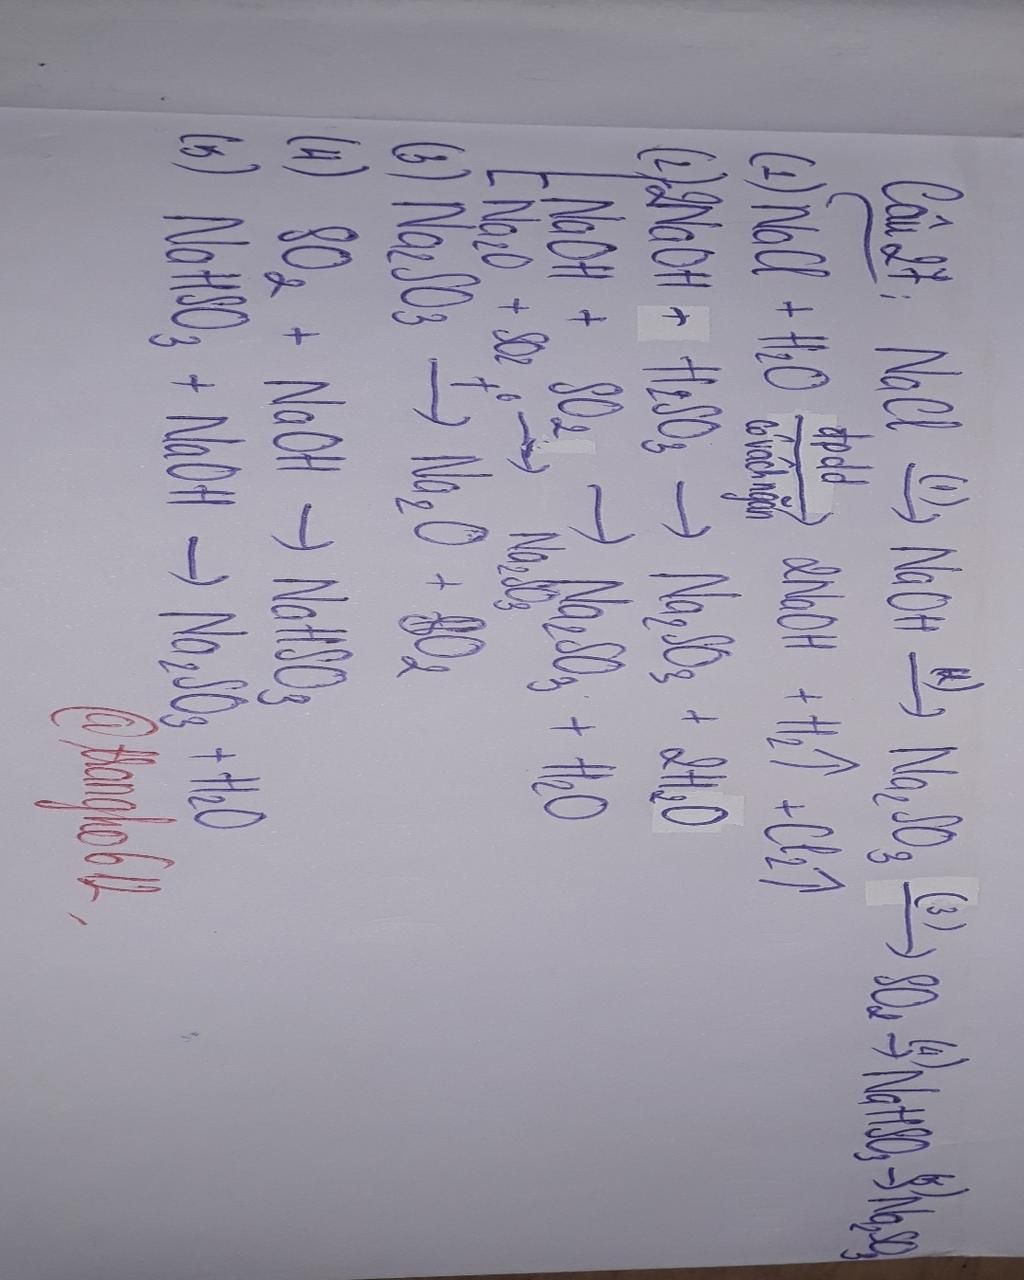 Câu 27: NaCl (1)→ NaOH (2)→ Na₂SO₃ (3)→ SO₂ (4)→ NaHSO₃ (5)→ Na₂SO₃
(1) NaCl + H₂O đpdd có vách ngăn → 2NaOH + H₂↑ + Cl₂↑
(2) 2NaOH + H₂SO₃ → Na₂SO₃ + 2H₂O
NaOH + SO₂ → Na₂SO₃ + H₂O
Na₂O + SO₂ → Na₂SO₃
(3) Na₂SO₃ t° → Na₂O + SO₂
(4) SO₂ + NaOH → NaHSO₃
(5) NaHSO₃ + NaOH → Na₂SO₃ + H₂O